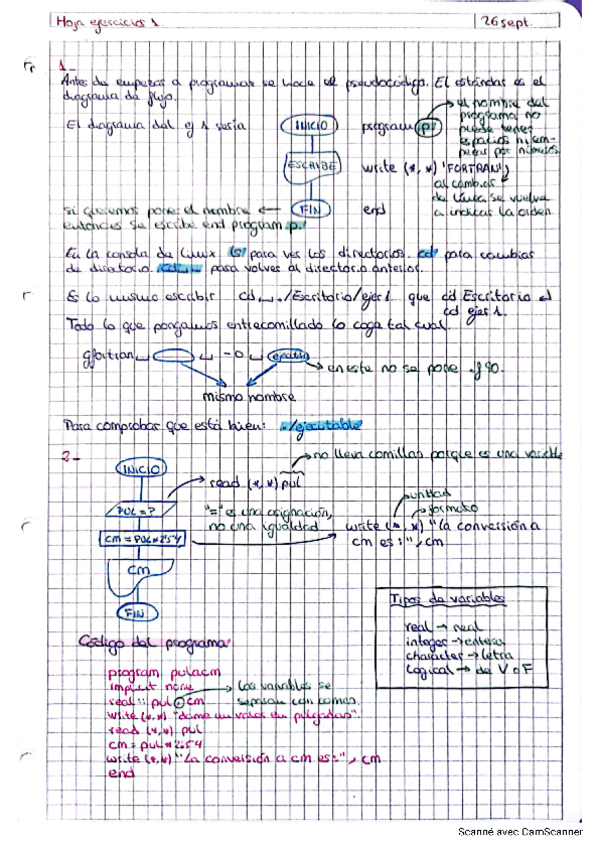 Hoja ejercicios 1.
26 sept.
1_
Antes de empezar a programar se hace el pseudocódigo. El estándar es el
diagrama de flujo.
El diagrama del ej 1 sería
INICIO
program p
el nombre del
programa no
puede tener
espacios ni em-
pezar por números
ESCRIBE
write (*,*) 'FORTRAN'
al cambiar
de línea se vuelve
a indicar la orden
FIN
end
si queremos poner el nombre
entonces se escribe end program p.
En la consola de Linux ls para ver los directorios. cd para cambiar
de directorio. cd␣.. para volver al directorio anterior.
Es lo mismo escribir cd␣./Escritorio/ejer1 que cd Escritorio
cd ejer 1.
Todo lo que pongamos entrecomillado lo coge tal cual.
gfortran␣ ␣ -o ␣
en este no se pone .f90.
mismo nombre
Para comprobar que está bien: ./ejecutable
2_
INICIO
read (*,*) pul
no lleva comillas porque es una variable
PUL=?
"=" es una asignación,
no una igualdad
unidad
formato
cm = PUL*2.54
write (*,*) "la conversión a
cm es:", cm
cm
FIN
Tipos de variables
real → real
integer → entera
character → letra
logical → de V o F
Código del programa:
program pulacm
implicit none
real :: pul, cm
las variables se
separan con comas.
write (*,*) "dame un valor en pulgadas"
read (*,*) pul
cm = pul*2.54
write (*,*) "La conversión a cm es:", cm
end
Scanné avec CamScanner